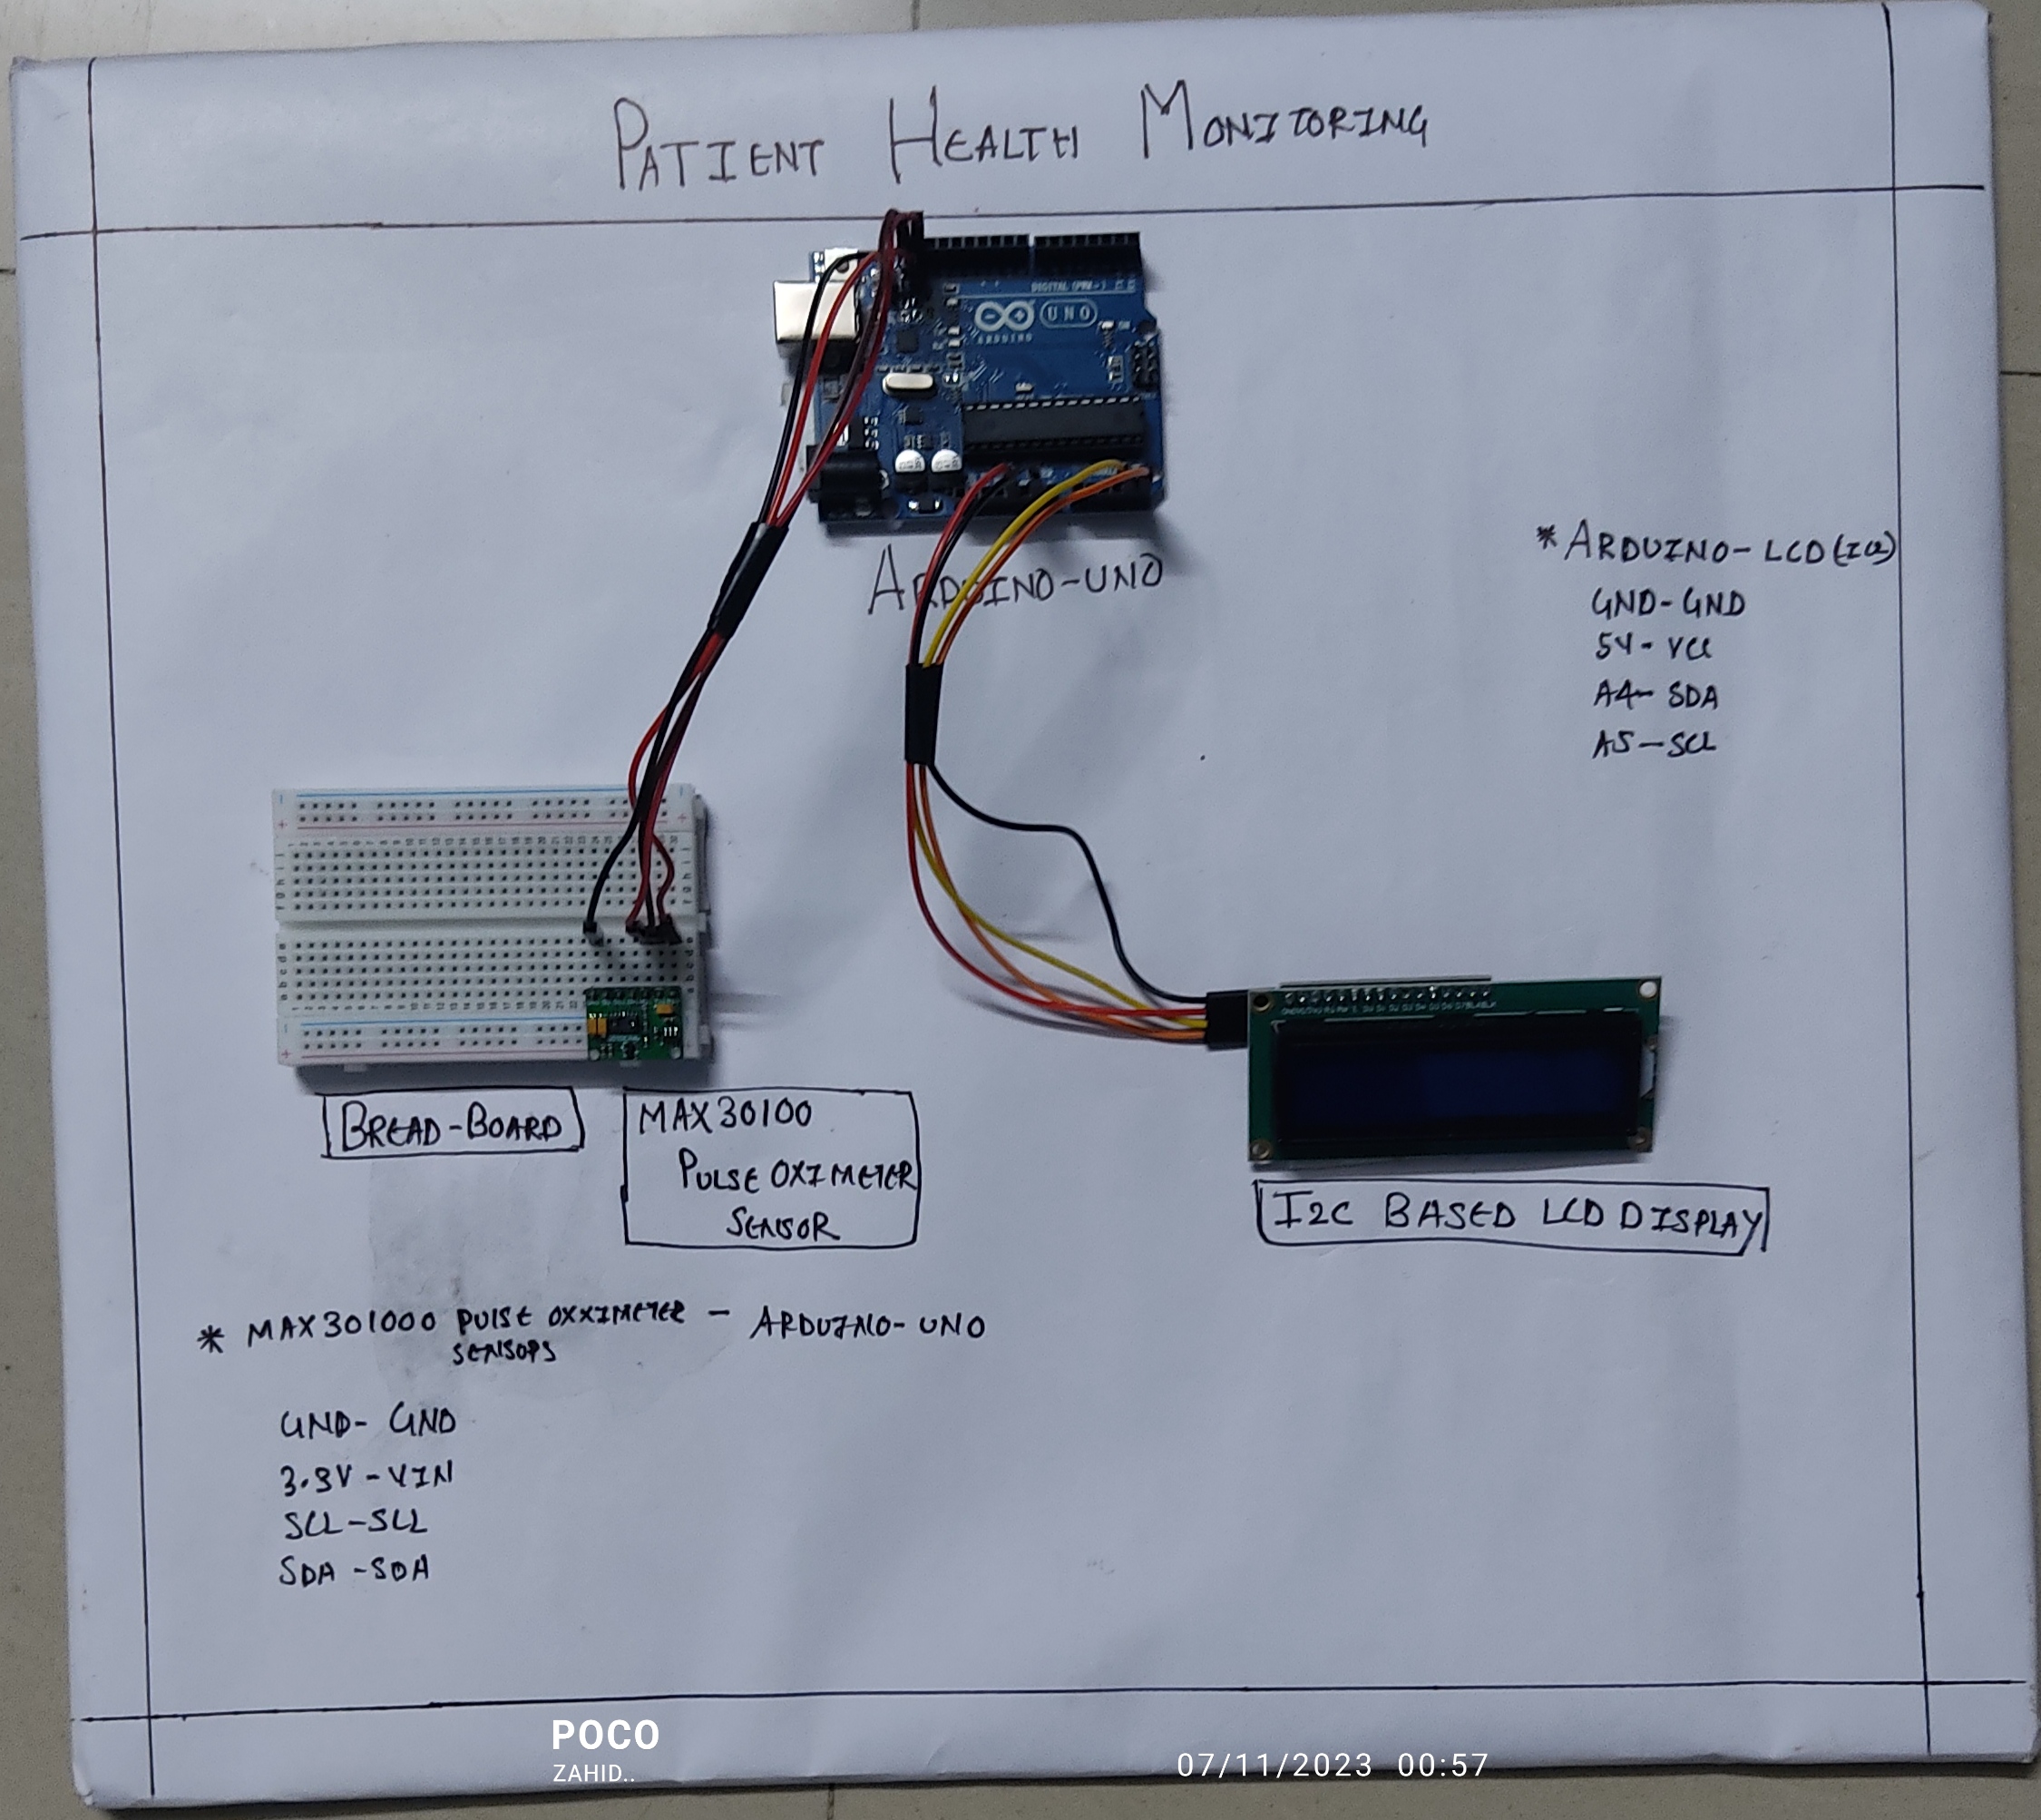 PATIENT HEALTH MONITORING
DIGITAL (PWM~)
UNO
ARDUINO
ARDUINO-UNO
* ARDUINO-LCD
GND-GND
5V-VCC
A4-SDA
A5-SCL
BREAD-BOARD
MAX30100
PULSE OXIMETER
SENSOR
I2C BASED LCD DISPLAY
* MAX301000 PULSE OXXIMETER - ARDUINO-UNO
SENSORS
GND-GND
3.3V-VIN
SCL-SCL
SDA-SDA
POCO
ZAHID..
07/11/2023 00:57